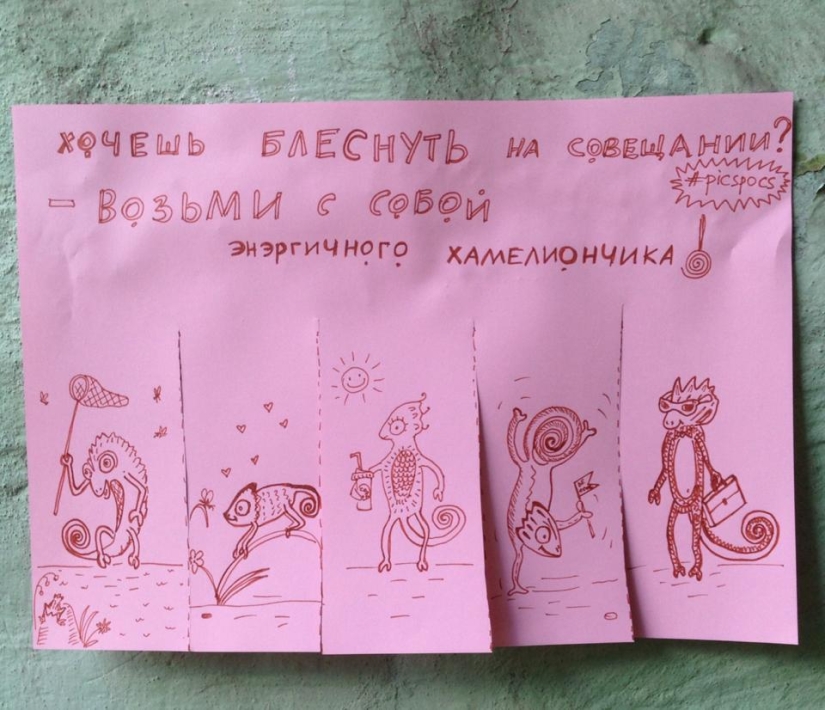 ХОЧЕШЬ БЛЕСНУТЬ НА СОВЕЩАНИИ?
#picspocs
– ВОЗЬМИ С СОБОЙ
ЭНЭРГИЧНОГО ХАМЕЛИОНЧИКА!